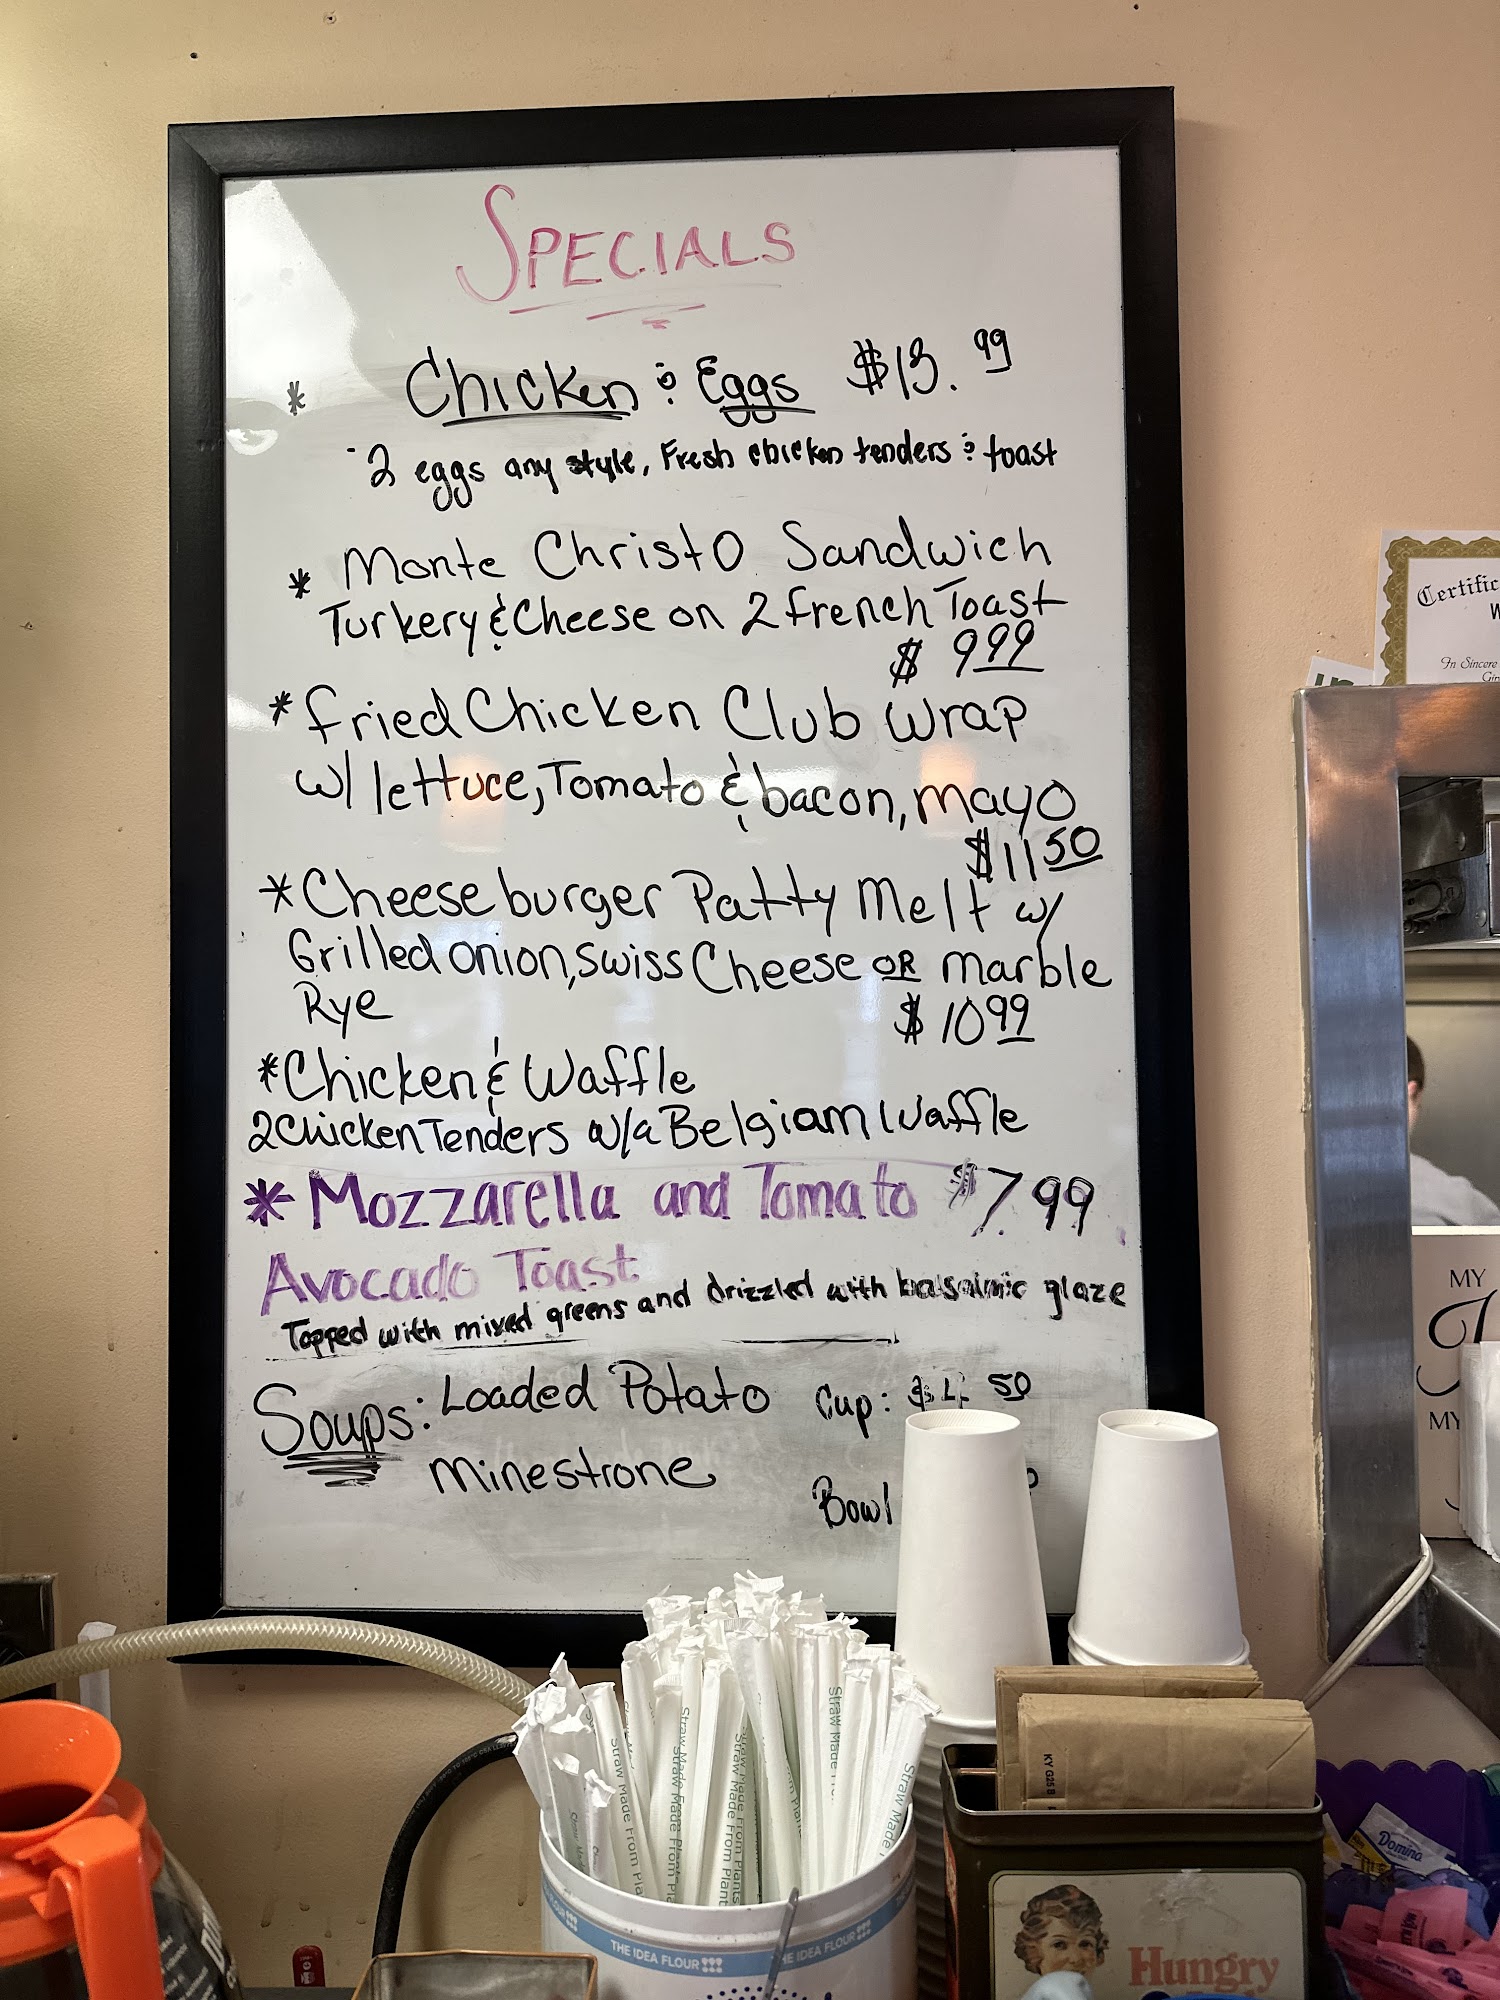 SPECIALS
* Chicken & Eggs $13.99
- 2 eggs any style, Fresh chicken tenders & toast
* Monte Christo Sandwich
Turkery & Cheese on 2 french Toast
$ 9.99
* fried Chicken Club wrap
w/ lettuce, Tomato & bacon, mayo
$11.50
* Cheese burger Patty Melt w/
Grilled onion, Swiss Cheese OR marble
Rye
$ 10.99
* Chicken & Waffle
2 Chicken Tenders w/a Belgiam Waffle
* Mozzarella and Tomato $7.99
Avocado Toast
Topped with mixed greens and drizzled with balsalmic glaze
Soups: Loaded Potato Cup: $4.50
Minestrone
Bowl
Certific
In Sincere
MY
MY
Straw Made From Plant
Straw Made From Plants
Straw Made
THE IDEA FLOUR
THE IDEA FLOUR
KY G25 B
Domino
Hungry